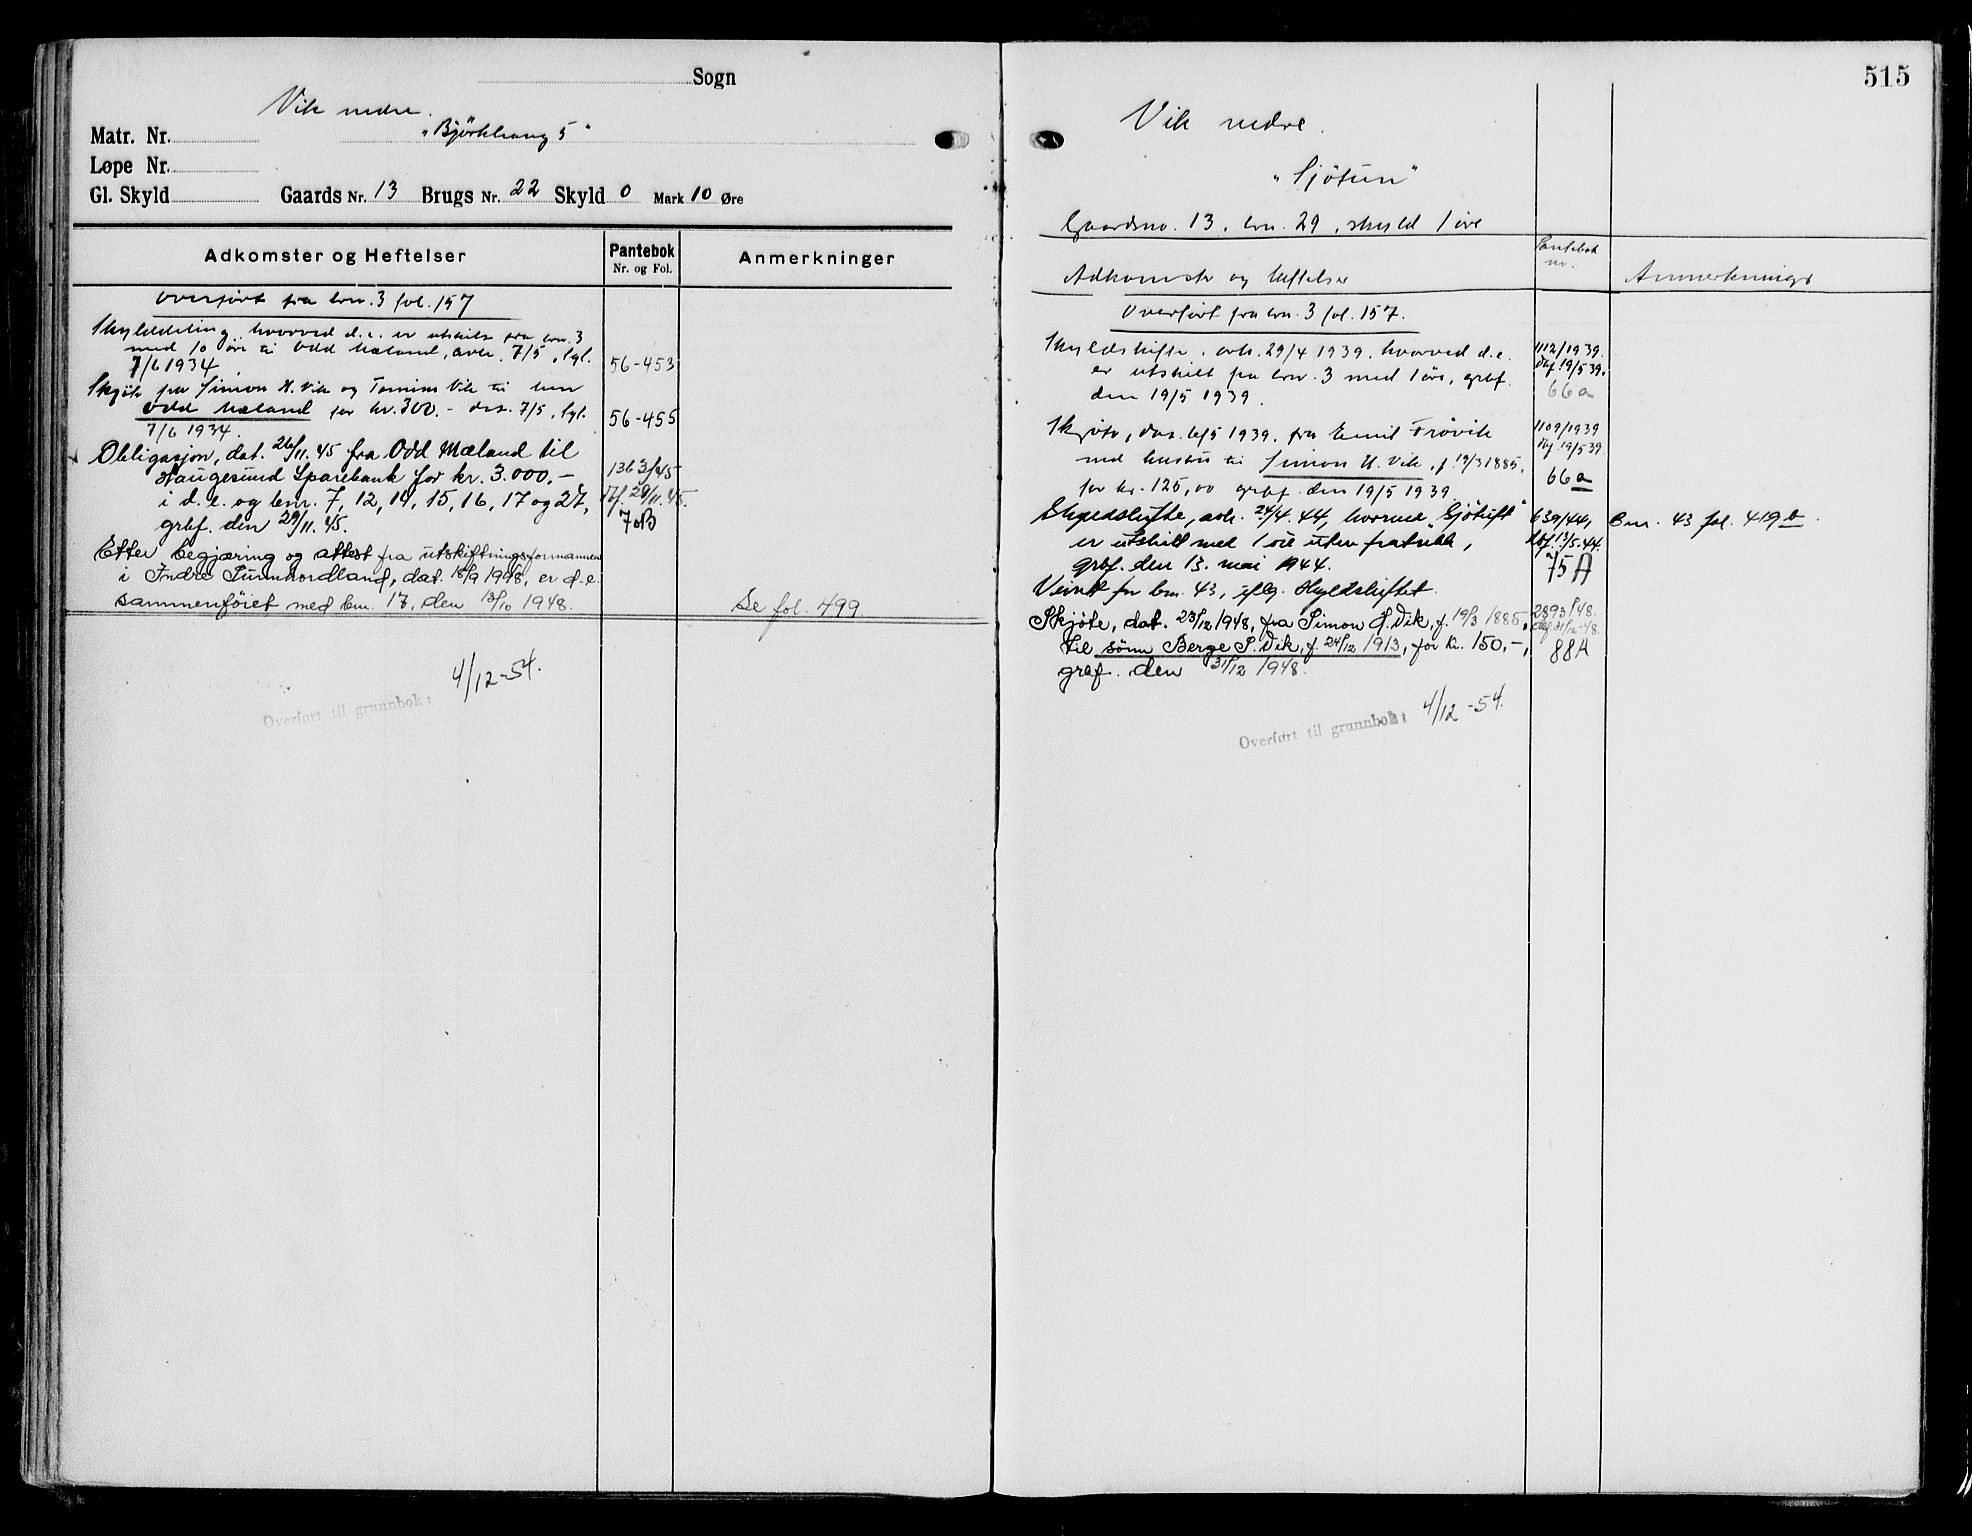 Sogn
Vik nedre.
Matr. Nr.
"Bjørkhaug 5"
Løpe Nr.
Gl. Skyld Gaards Nr. 13 Brugs Nr. 22 Skyld 0 Mark 10 Øre
Adkomster og Heftelser Pantebok Nr. og Fol. Anmerkninger
Overført fra brn. 3 fol. 157
Skylddeling, hvorved d.e. er utskilt fra brn. 3
med 10 øre til Odd Mæland, avh. 7/5, tgl.
7/6 1934. 56-453
Skjøte fra Simon H. Vik og Tomine Vik til
Odd Mæland for kr. 300.- dat. 7/5, tgl. 56-455
7/6 1934.
Obligasjon, dat. 26/11. 45 fra Odd Mæland til
Haugesund Sparebank for kr. 3.000,- 1363/45
i d. e. og bnr. 7, 12, 14, 15, 16, 17 og 27, Dbf. 29/11. 45.
grbf. den 29/11. 45. 7 B
Etter begjæring og attest fra utskiftningsformannen
i Indre Sunnhordland, dat. 18/9 1948, er d.e.
sammenføiet med bnr. 17, den 13/10 1948. Se fol. 499
4/12-54.
Overført til grunnbok:
515
Vik nedre.
"Sjøtun"
Gaardsno. 13, brn. 29, skyld 1 øre
Adkomster og heftelser Pantebok no. Anmerkninger
Overført fra brn. 3 fol. 157.
Skyldskifte, avh. 29/4 1939, hvorved d.e. 1112/1939.
er utskilt fra brn. 3 med 1 øre, grbf. Dbf 19/5 39.
den 19/5 1939. 66a
Skjøte, dat. 6/5 1939, fra Emil Frøvik 1109/1939
med hustru til Simon H. Vik, f. 19/3 1885, Dbf 19/5 39
for kr. 125,00 grbf. den 19/5 1939. 66a
Skyldskifte, avh. 24/4. 44, hvorved "Sjøtuft" 639/44, Bnr. 43 fol. 419b.
er utskilt med 1 øre uten fratrekk, Dbf. 13/5-44.
grbf. den 13. mai 1944. 75A
Veirett for bnr. 43, iflg. skyldskiftet.
Skjøte, dat. 23/12 1948, fra Simon H. Vik, f. 19/3 1885, 2893/48.
til sønn Berge S. Vik, f. 24/12 1913, for kr. 150,-, Dbf 31/12-48.
grbf. den 31/12 1948. 88A
Overført til grunnbok: 4/12-54.